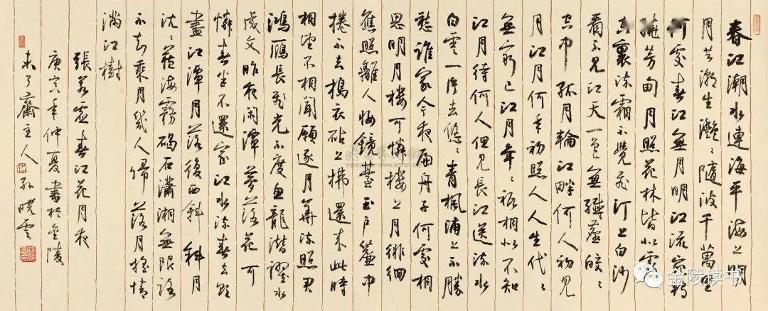 春江潮水連海平海上明
月共潮生灩〻隨波千萬里
何處春江無月明江流宛轉
繞芳甸月照花林皆似霰
空裏流霜不覺飛汀上白沙
看不見江天一色無纖塵皎〻
空中孤月輪江畔何人初見
月江月何年初照人人生代〻
無窮已江月年〻祗相似不知
江月待何人但見長江送流水
白雲一片去悠〻青楓浦上不勝
愁誰家今夜扁舟子何處相
思明月樓可憐樓上月徘徊
應照離人妝鏡臺玉戶簾中
捲不去搗衣砧上拂還來此時
相望不相聞願逐月華流照君
鴻鴈長飛光不度魚龍潛躍水
成文昨夜閑潭夢落花可
憐春半不還家江水流春去欲
盡江潭月落復西斜斜月
沈〻藏海霧碣石瀟湘無限路
不知乘月幾人歸落月搖情
滿江樹
張若虛春江花月夜
庚寅年仲夏書於金陵
未了齋主人孫曉雲
金陵读书